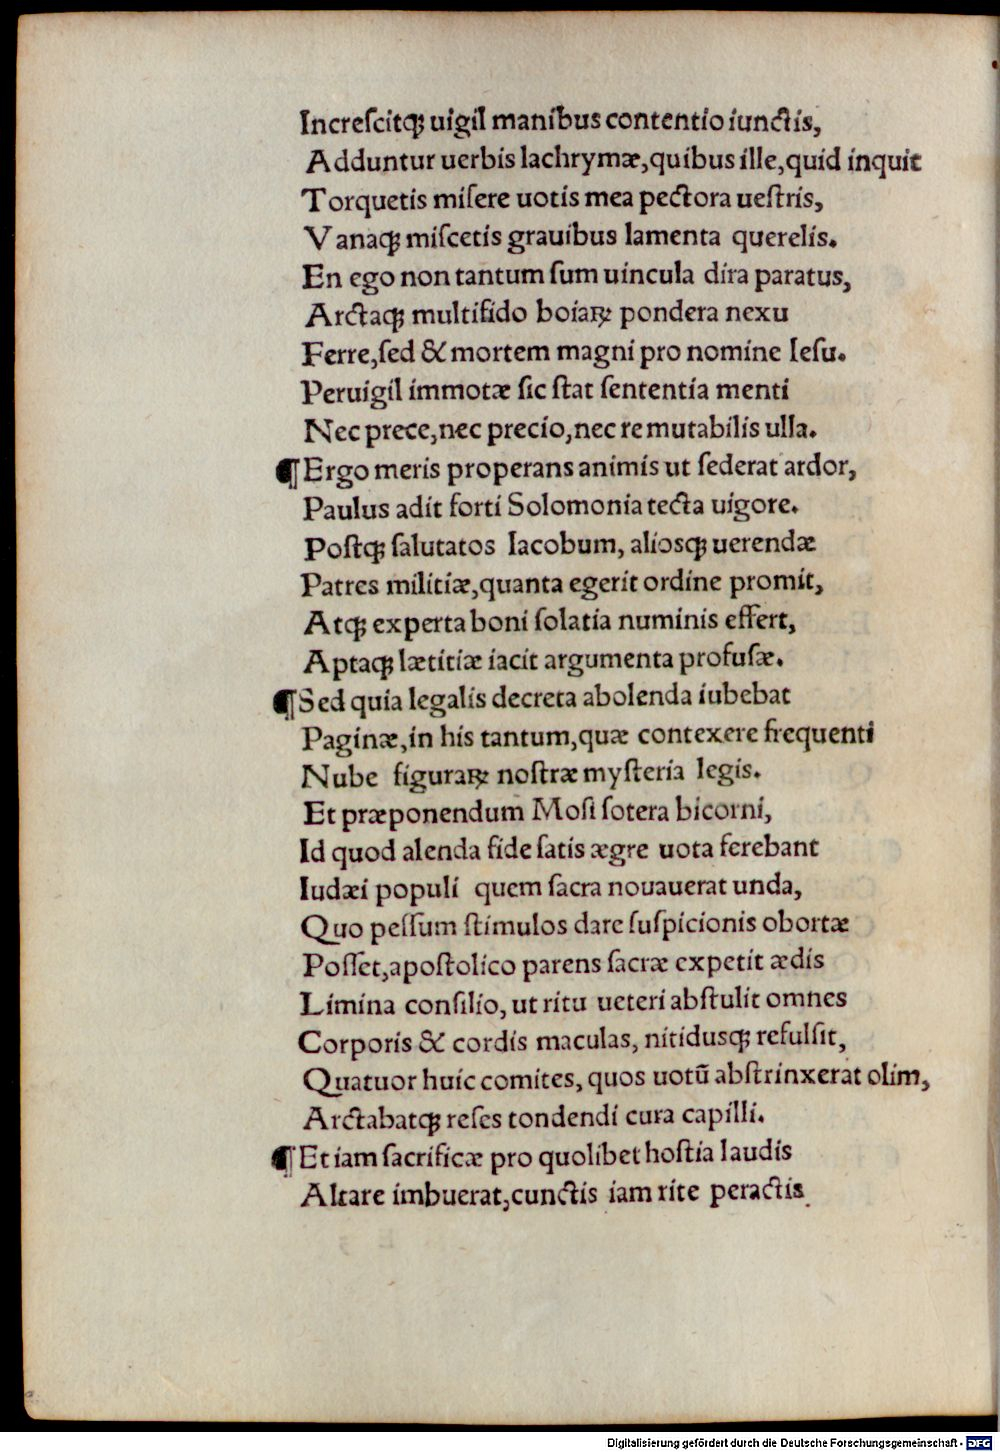 Increſcitꝗ uigil manibus contentio iunctis,
Adduntur uerbis lachrymæ,quibus ille,quid inquit
Torquetis miſere uotis mea pectora ueſtris,
Vanaꝗ miſcetis grauibus lamenta querelis.
En ego non tantum ſum uincula dira paratus,
Arctaꝗ multifido boiaꝝ pondera nexu
Ferre,ſed & mortem magni pro nomine Ieſu.
Peruigil immotæ ſic ſtat ſententia menti
Nec prece,nec precio,nec re mutabilis ulla.
¶Ergo meris properans animis ut ſederat ardor,
Paulus adit forti Solomonia tecta uigore.
Poſtꝗ ſalutatos Iacobum, alioſꝗ uerendæ
Patres militiæ,quanta egerit ordine promit,
Atꝗ experta boni ſolatia numinis effert,
Aptaꝗ lætitiæ iacit argumenta profuſæ.
¶Sed quia legalis decreta abolenda iubebat
Paginæ,in his tantum,quæ contexere frequenti
Nube figuraꝝ noſtræ myſteria legis.
Et præponendum Moſi ſotera bicorni,
Id quod alenda fide ſatis ægre uota ferebant
Iudæi populi quem ſacra nouauerat unda,
Quo peſſum ſtimulos dare ſuſpicionis obortæ
Poſſet,apoſtolico parens ſacræ expetit ædis
Limina conſilio, ut ritu ueteri abſtulit omnes
Corporis & cordis maculas, nitidusꝗ refulſit,
Quatuor huic comites, quos uotū abſtrinxerat olim,
Arctabatꝗ reſes tondendi cura capilli.
¶Et iam ſacrificæ pro quolibet hoſtia laudis
Altare imbuerat,cunctis iam rite peractis.
Digitalisierung gefördert durch die Deutsche Forschungsgemeinschaft - DFG